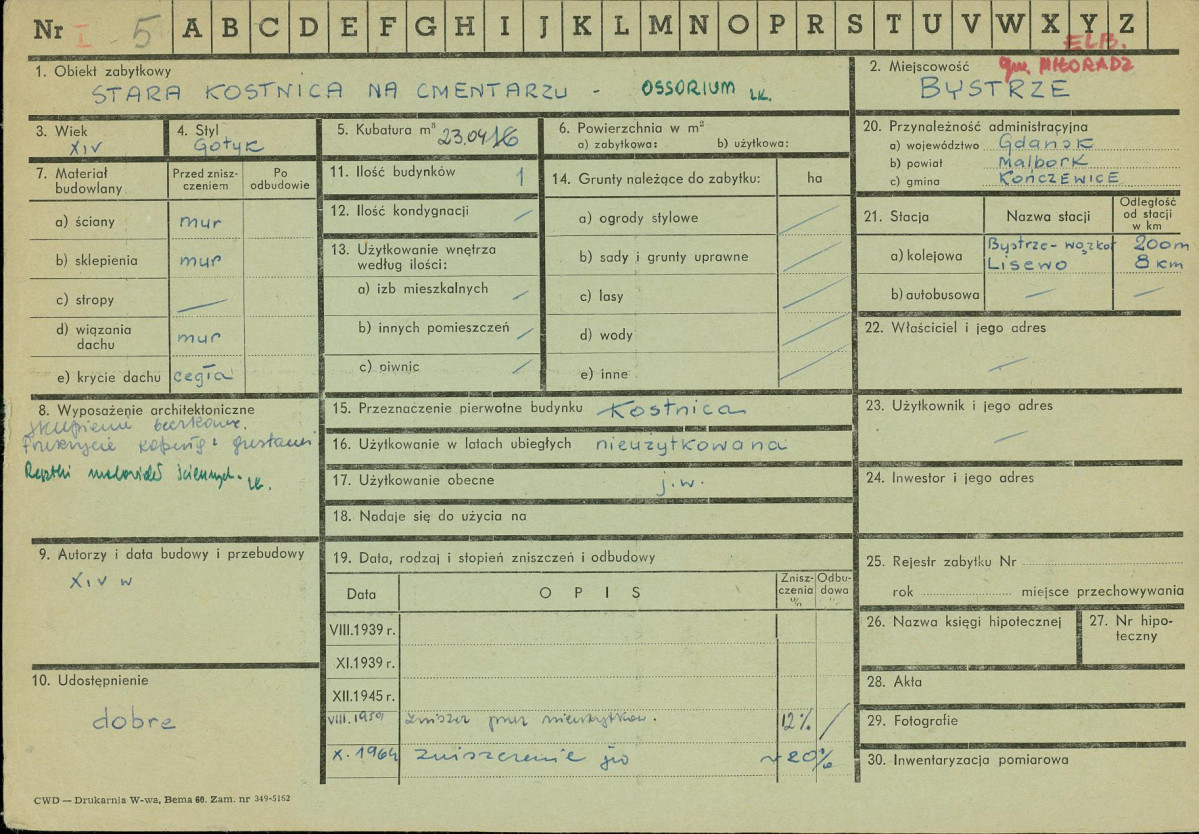 Nr I 5 A B C D E F G H I J K L M N O P R S T U V W X Y Z
ELB.
gm. MIŁORADZ
1. Obiekt zabytkowy
STARA KOSTNICA NA CMENTARZU - OSSORIUM
2. Miejscowość
BYSTRZE
3. Wiek
XIV
4. Styl
Gotyk
5. Kubatura m³
6. Powierzchnia w m²
a) zabytkowa: b) użytkowa:
7. Materiał budowlany
Przed zniszczeniem
Po odbudowie
a) ściany mur
b) sklepienia mur
c) stropy —
d) wiązania dachu mur
e) krycie dachu cegła
8. Wyposażenie architektoniczne
Resztki malowideł ściennych.
9. Autorzy i data budowy i przebudowy
XIV w
10. Udostępnienie
dobre
11. Ilość budynków 1
12. Ilość kondygnacji /
13. Użytkowanie wnętrza
według ilości:
a) izb mieszkalnych /
b) innych pomieszczeń /
c) piwnic /
14. Grunty należące do zabytku: ha
a) ogrody stylowe /
b) sady i grunty uprawne /
c) lasy /
d) wody /
e) inne /
15. Przeznaczenie pierwotne budynku Kostnica
16. Użytkowanie w latach ubiegłych nieużytkowana
17. Użytkowanie obecne j.w.
18. Nadaje się do użycia na
19. Data, rodzaj i stopień zniszczeń i odbudowy
Data OPIS Zniszczenia % Odbudowa %
VIII.1939 r.
XI.1939 r.
XII.1945 r.
VIII.1959 12% /
X.1964 Zniszczenie ~20%
20. Przynależność administracyjna
a) województwo Gdańsk
b) powiat Malbork
c) gmina KOŃCZEWICE
21. Stacja
Nazwa stacji
Odległość od stacji w km
a) kolejowa Bystrze-wązkot 200m
Lisewo 8 km
b) autobusowa — —
22. Właściciel i jego adres
—
23. Użytkownik i jego adres
—
24. Inwestor i jego adres
25. Rejestr zabytku Nr
rok miejsce przechowywania
26. Nazwa księgi hipotecznej
27. Nr hipoteczny
28. Akta
29. Fotografie
30. Inwentaryzacja pomiarowa
CWD — Drukarnia W-wa, Bema 60. Zam. nr 349-5162